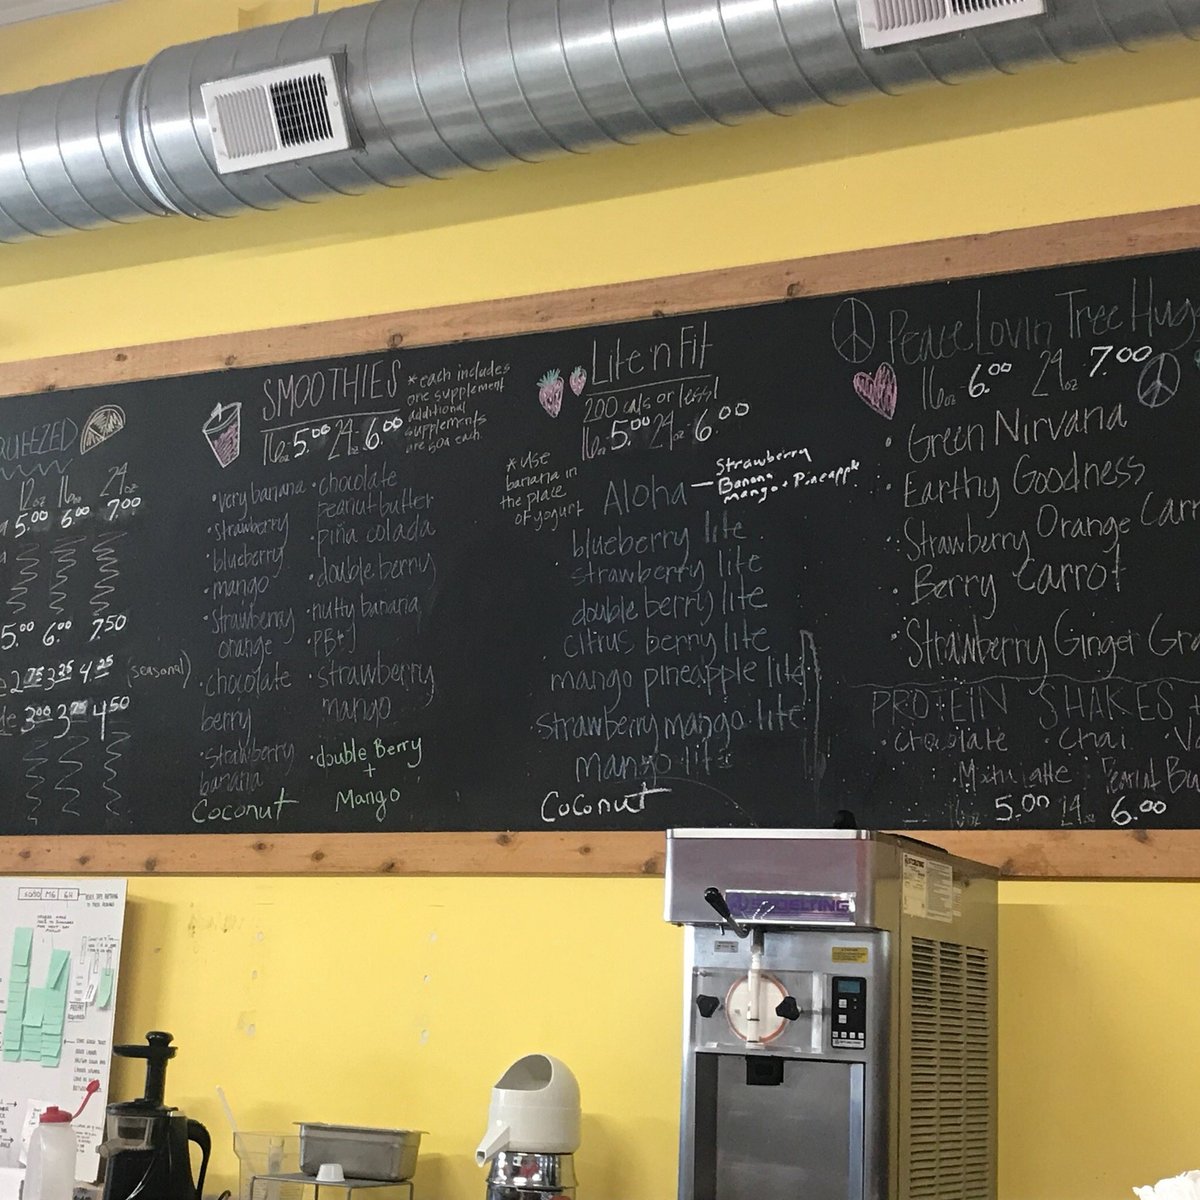 12oz 16oz 24oz
5.00 6.00 7.00
5.00 6.00 7.50
2.75 3.25 4.25 (seasonal)
3.00 3.75 4.50
SMOOTHIES
16oz 5.00 24oz 6.00
*each includes
one supplement
additional
supplements
are 50¢ each
• very banana
• strawberry
• blueberry
• mango
• Strawberry
orange
• chocolate
berry
• strawberry
banana
Coconut
• chocolate
peanut butter
• piña colada
• double berry
• nutty banana
• PB+J
• strawberry
mango
• double Berry
+
Mango
Lite 'n Fit
200 cals or less!
16oz 5.00 24oz 6.00
*use
banana in
the place
of yogurt
Aloha — Strawberry
Banana
mango • Pineapple
blueberry lite
strawberry lite
double berry lite
citrus berry lite
mango pineapple lite
strawberry mango lite
mango lite
Coconut
Peace Lovin Tree Hug
16oz 6.00 24oz 7.00
• Green Nirvana
• Earthy Goodness
• Strawberry Orange Carr
• Berry Carrot
• Strawberry Ginger Gra
PROTEIN SHAKES
• Chocolate • Chai
• Mocha Latte Peanut Bu
16oz 5.00 24 6.00
STOELTING